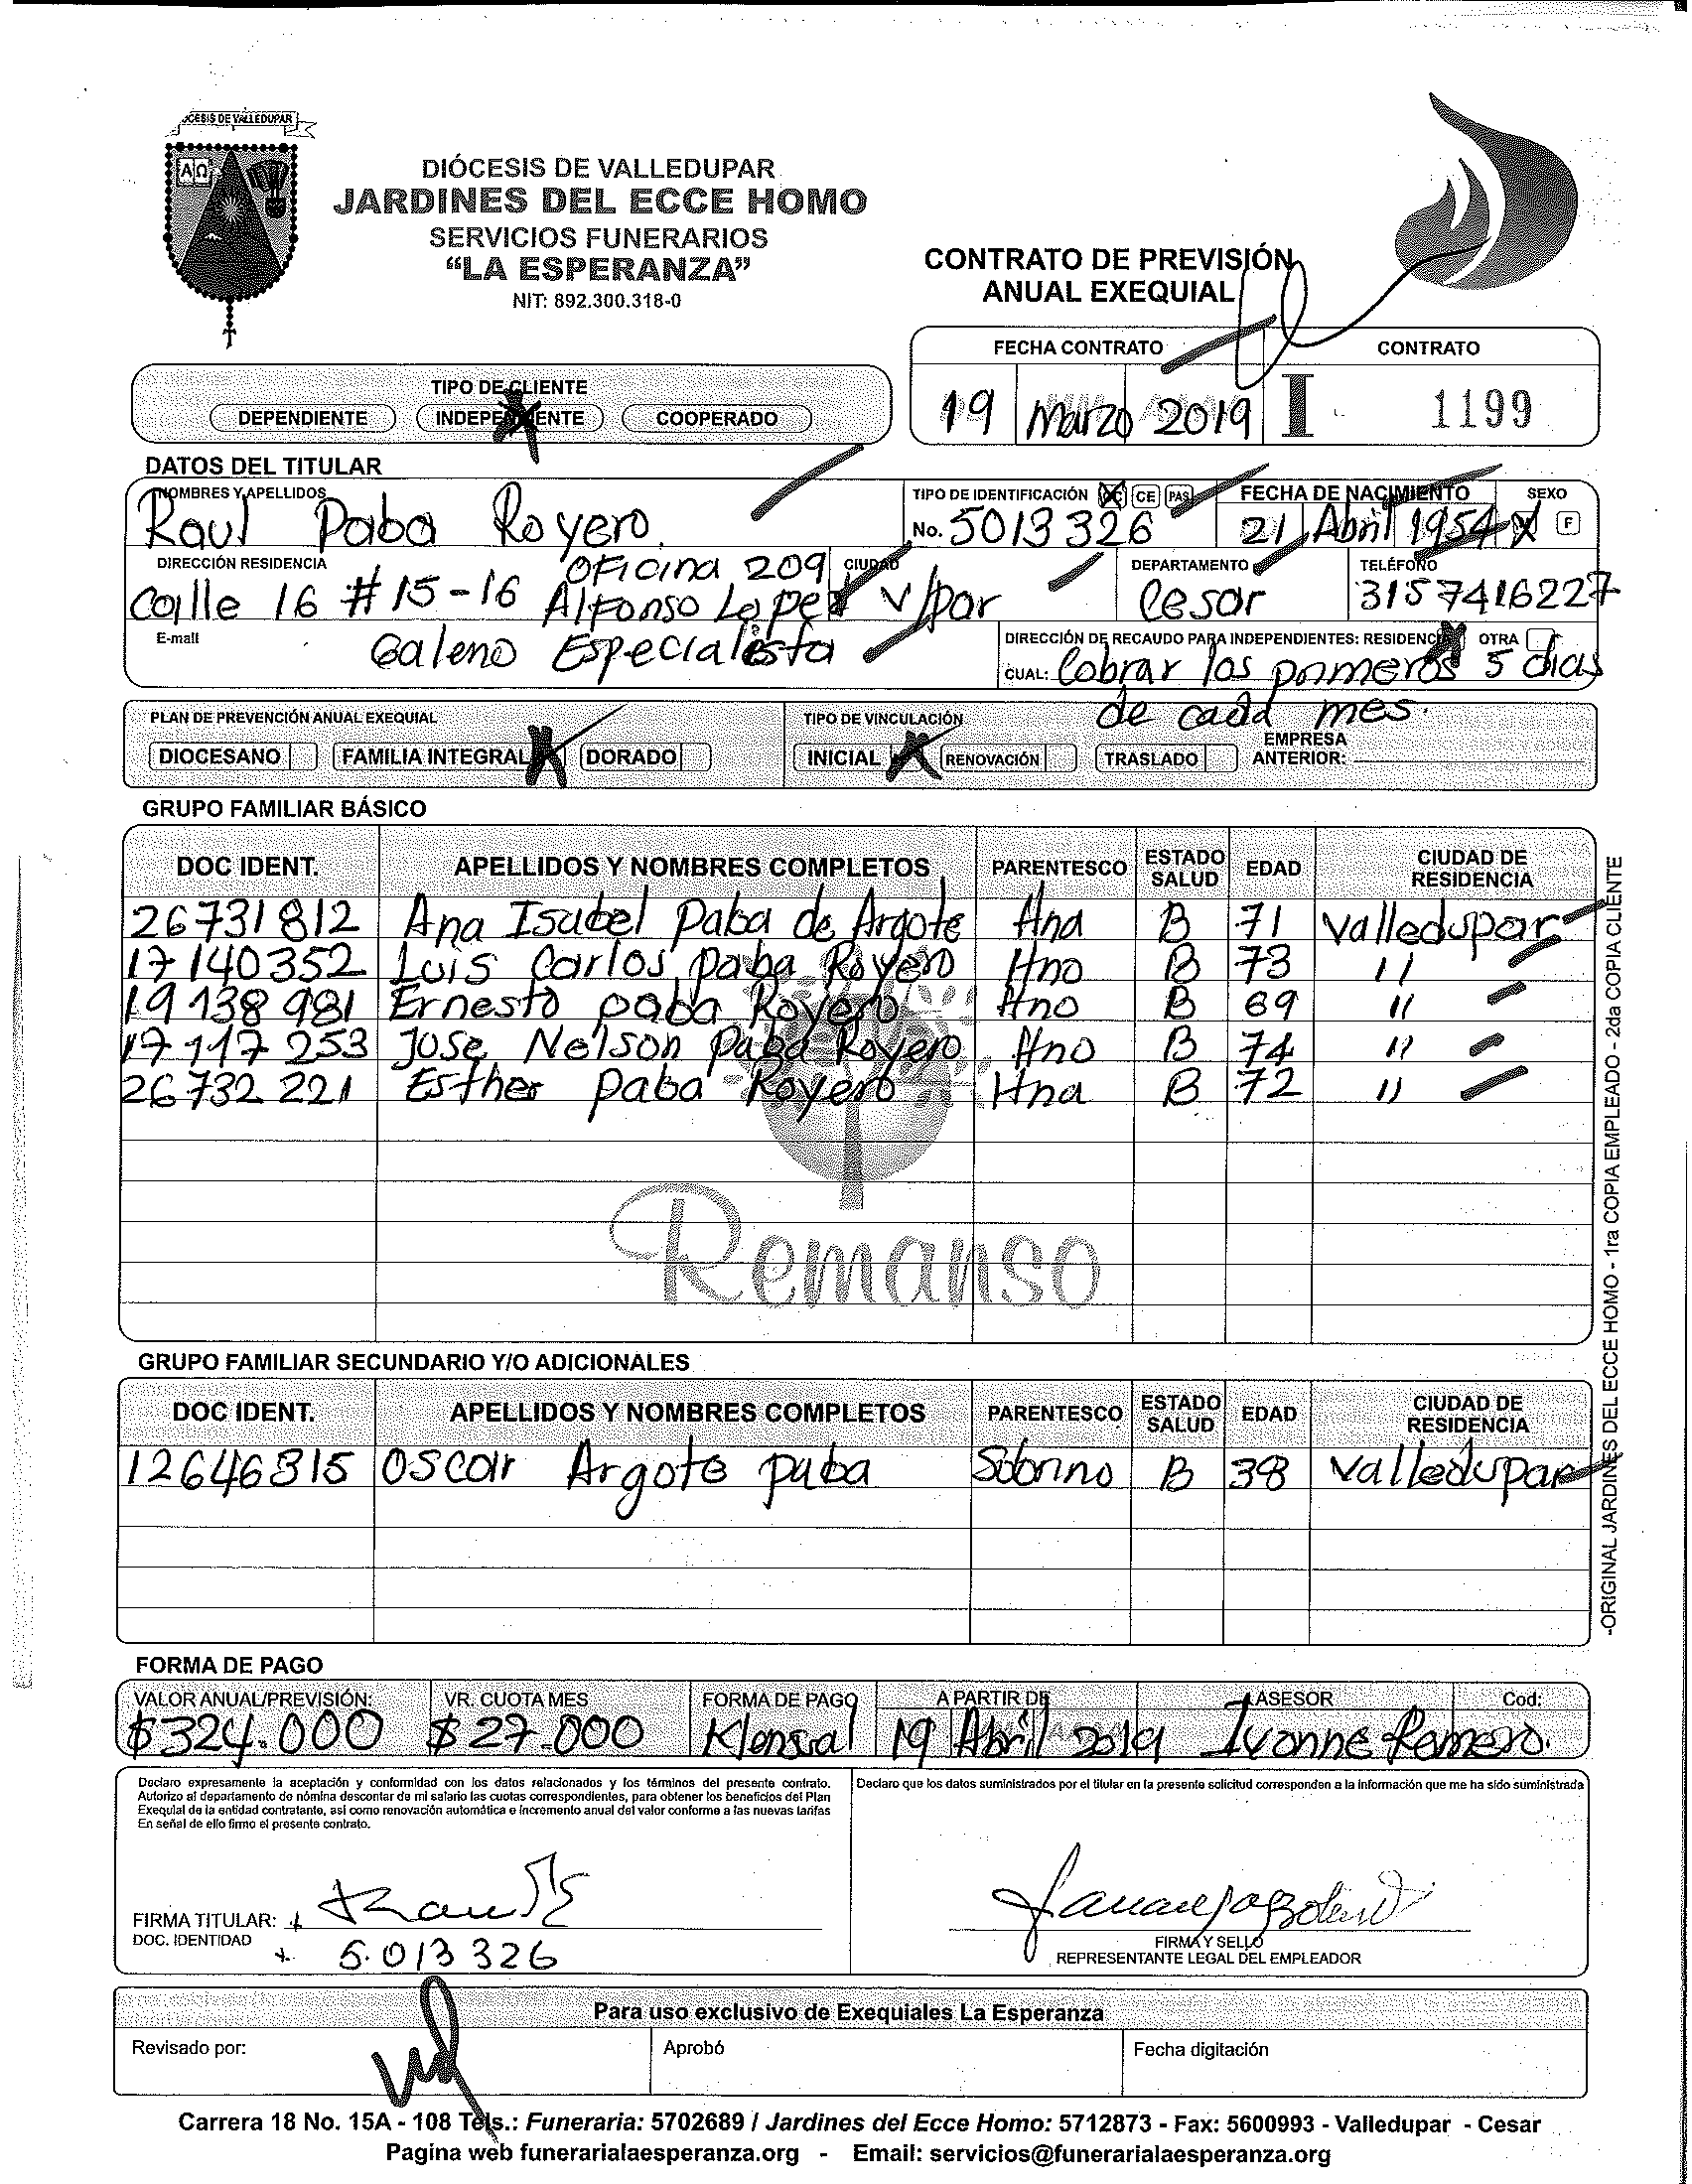 DIÓCESIS DE VALLEDUPAR
JARDINES DEL ECCE HOMO
SERVICIOS FUNERARIOS
“LA ESPERANZA”
NIT: 892.300.318-0
CONTRATO DE PREVISIÓN
ANUAL EXEQUIAL
FECHA CONTRATO CONTRATO
19 Marzo 2019 I 1199
TIPO DE CLIENTE
DEPENDIENTE INDEPENDIENTE COOPERADO
DATOS DEL TITULAR
NOMBRES Y APELLIDOS TIPO DE IDENTIFICACIÓN CC CE PAS FECHA DE NACIMIENTO SEXO
Raul Paba Royero No. 5013326 21 Abril 1954 X F
DIRECCIÓN RESIDENCIA OFicina 209 CIUDAD DEPARTAMENTO TELÉFONO
Calle 16 # 15-16 Alfonso Lopez V/par Cesar 3157416227
E-mail Galeno Especialista DIRECCIÓN DE RECAUDO PARA INDEPENDIENTES: RESIDENCIA OTRA
CUAL: Cobrar los primeros 5 dias
de cada mes.
PLAN DE PREVENCIÓN ANUAL EXEQUIAL TIPO DE VINCULACIÓN
DIOCESANO FAMILIA INTEGRAL X DORADO INICIAL X RENOVACIÓN TRASLADO EMPRESA ANTERIOR:
GRUPO FAMILIAR BÁSICO
DOC IDENT. APELLIDOS Y NOMBRES COMPLETOS PARENTESCO ESTADO SALUD EDAD CIUDAD DE RESIDENCIA
26731812 Ana Isabel Paba de Argote Hna B 71 Valledupar
17140352 Luis Carlos paba Royero Hno B 73 "
19138981 Ernesto paba Royero Hno B 69 "
17117253 Jose Nelson Paba Royero Hno B 74 "
26732221 Esther paba Royero Hna B 72 "
Remanso
GRUPO FAMILIAR SECUNDARIO Y/O ADICIONALES
DOC IDENT. APELLIDOS Y NOMBRES COMPLETOS PARENTESCO ESTADO SALUD EDAD CIUDAD DE RESIDENCIA
12646815 Oscar Argote paba Sobrino B 38 Valledupar
-ORIGINAL JARDINES DEL ECCE HOMO - 1ra COPIA EMPLEADO - 2da COPIA CLIENTE
FORMA DE PAGO
VALOR ANUAL/PREVISIÓN: VR. CUOTA MES FORMA DE PAGO A PARTIR DE ASESOR Cod:
$324.000 $27.000 Mensual 19 Abril 2019 Ivonne Romero.
Declaro expresamente la aceptación y conformidad con los datos relacionados y los términos del presente contrato.
Autorizo al departamento de nómina descontar de mi salario las cuotas correspondientes, para obtener los beneficios del Plan
Exequial de la entidad contratante, así como renovación automática e incremento anual del valor conforme a las nuevas tarifas
En señal de ello firmo el presente contrato.
Declaro que los datos suministrados por el titular en la presente solicitud corresponden a la información que me ha sido suministrada
FIRMA TITULAR:
DOC. IDENTIDAD 5.013326
FIRMA Y SELLO
REPRESENTANTE LEGAL DEL EMPLEADOR
Para uso exclusivo de Exequiales La Esperanza
Revisado por: Aprobó Fecha digitación
Carrera 18 No. 15A - 108 Tels.: Funeraria: 5702689 / Jardines del Ecce Homo: 5712873 - Fax: 5600993 - Valledupar - Cesar
Pagina web funerarialaesperanza.org - Email: servicios@funerarialaesperanza.org